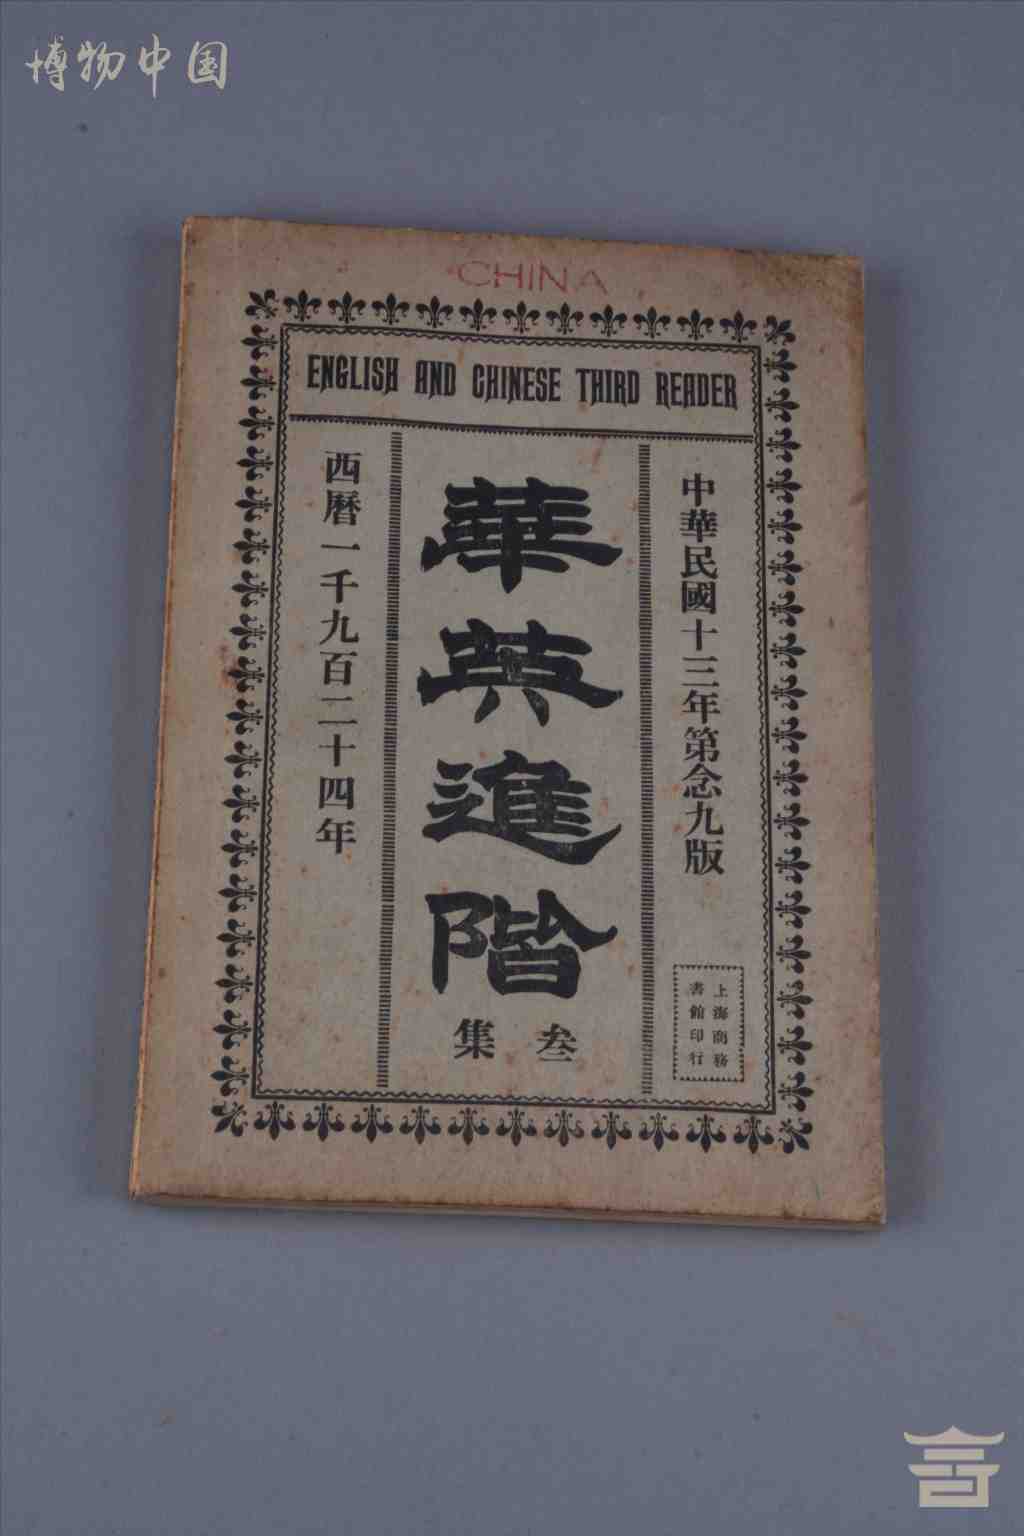 博物中国
CHINA
ENGLISH AND CHINESE THIRD READER
中華民國十三年第念九版
華英進階
叁集
西曆一千九百二十四年
上海商務
書館印行